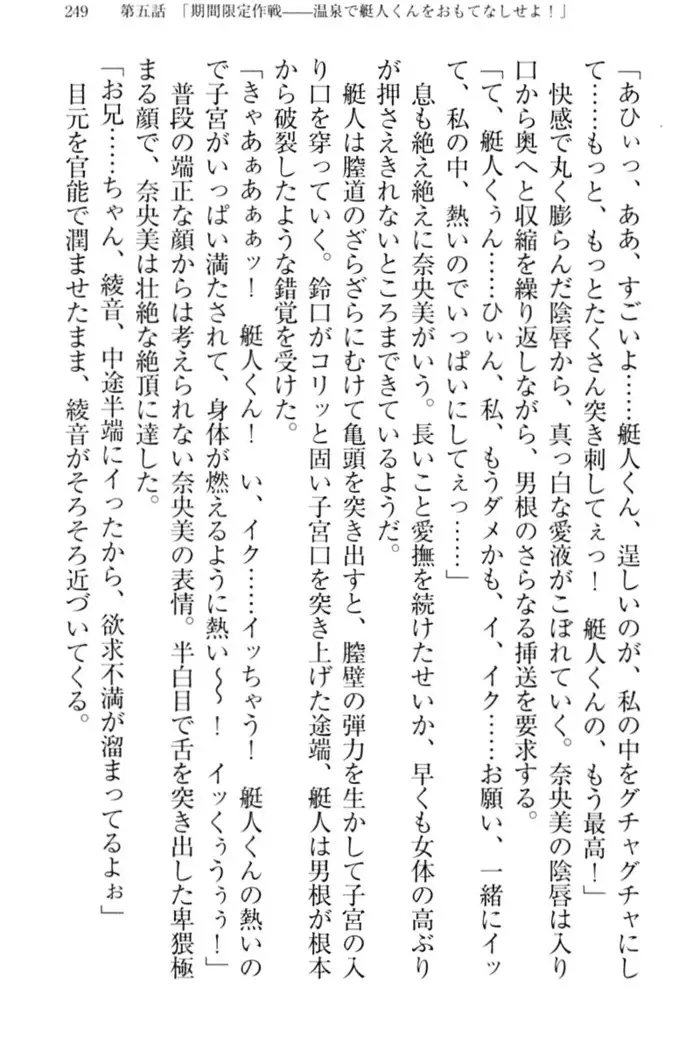 249　第五話　「期間限定作戦――温泉で艇人くんをおもてなしせよ！」
「あひぃっ、ああ、すごいよ……艇人くん、逞しいのが、私の中をグチャグチャにし
て……もっと、もっとたくさん突き刺してぇっ！　艇人くんの、もう最高！」
　快感で丸く膨らんだ陰唇から、真っ白な愛液がこぼれていく。奈央美の陰唇は入り
口から奥へと収縮を繰り返しながら、男根のさらなる挿送を要求する。
「て、艇人くぅん……ひぃん、私、もうダメかも、イ、イク……お願い、一緒にイッ
て、私の中、熱いのでいっぱいにしてぇっ……」
　息も絶え絶えに奈央美がいう。長いこと愛撫を続けたせいか、早くも女体の高ぶり
が押さえきれないところまできているようだ。
　艇人は膣道のざらざらにむけて亀頭を突き出すと、膣壁の弾力を生かして子宮の入
り口を穿っていく。鈴口がコリッと固い子宮口を突き上げた途端、艇人は男根が根本
から破裂したような錯覚を受けた。
「きゃあぁあぁぁッ！　艇人くん！　い、イク……イッちゃう！　艇人くんの熱いの
で子宮がいっぱい満たされて、身体が燃えるように熱い～～！　イッくぅうぅぅ！」
　普段の端正な顔からは考えられない奈央美の表情。半白目で舌を突き出した卑猥極
まる顔で、奈央美は壮絶な絶頂に達した。
「お兄……ちゃん、綾音、中途半端にイったから、欲求不満が溜まってるよぉ」
　目元を官能で潤ませたまま、綾音がそろそろ近づいてくる。